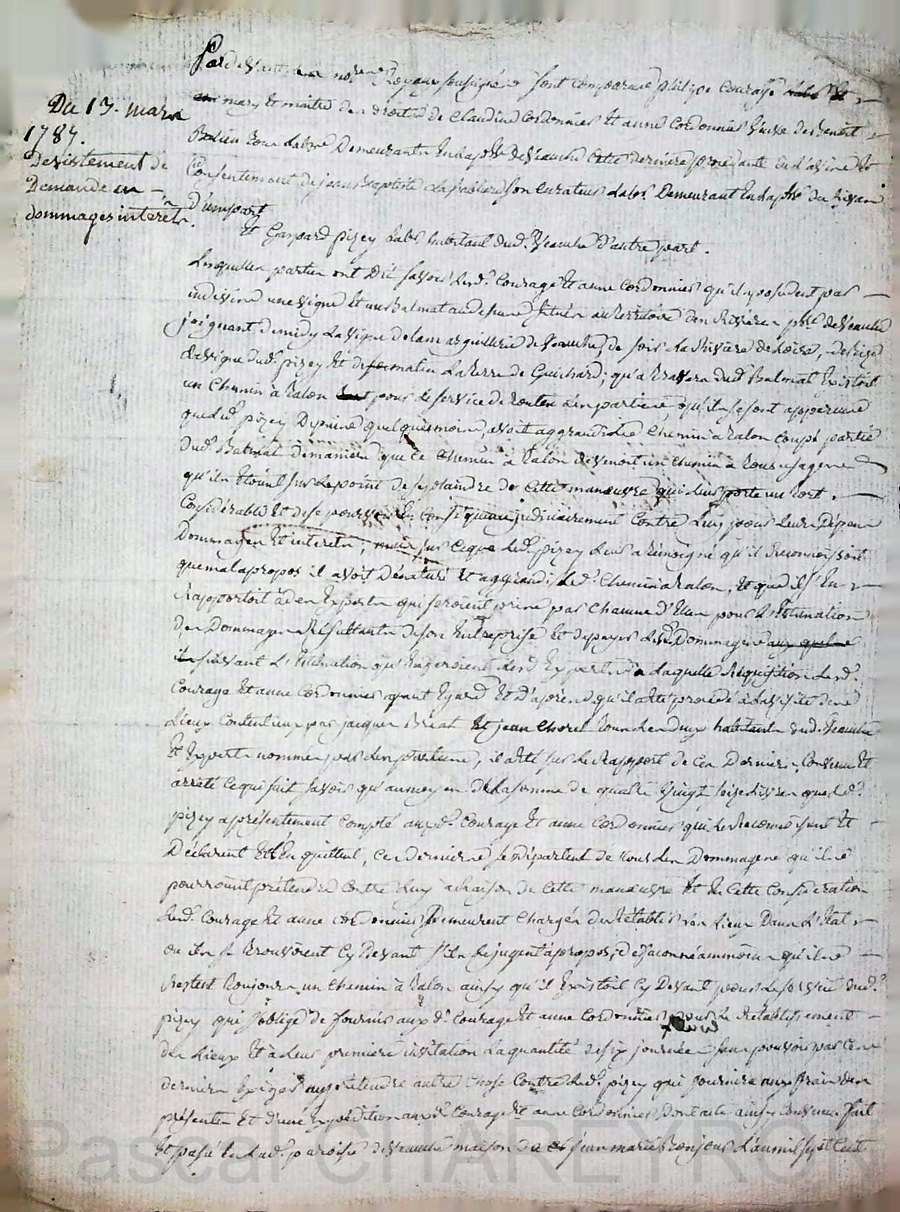 Du 13. mars
1787.
Desistement de
Demande en
dommages interêts.
Pardevant no.re Royaux soussigné sont comparus philipe Courage
mary et maitre des droits de Claudine Cordonnier Et anne Cordonnier Veuve de benoit
Demeurants En la psse de Veauche Cette derniere procedante de l'avis et
Consentement de jean baptiste son Curateur labor Demeurant En la psse de
D'une part
Et Gaspard pizey labr habitant dud. Veauche d'autre part.
Lesquelles parties ont dit savoir lesd. Courage Et anne Cordonnier qu'ils possedent par
indivis une vigne Et un Balmat au dessus situés au territoire des Rivières psse de Veauche
joignant de midy la vigne de la marguillerie de Veauche, de soir la Riviere de Loire, de bize
la vigne dud. pizey Et de matin la terre de Guichard; qu'a travers dud. Balmat Existoit
un Chemin à talon pour le service de toutes les parties qu'ils se sont apperçus
que led. pizey Depuis quelques mois, avoit aggrandi le Chemin à talon coupé partie
dud. Balmat de maniere que ce Chemin à talon devenoit un Chemin à tous usages
qu'ils Etoient sur le point de se plaindre de Cette manœuvre qui leur porte un tort
Considérable Et de se pourvoir En Consequence judiciairement Contre luy pour leurs Dépens
Dommages Et interets, mais sur ce que led. pizey leur a temoigné qu'il Reconnoissoit
que mal apropos il avoit Dénaturé Et aggrandi led. Chemin à talon, Et que il s'En
Rapportoit à des Experts qui seroient prins par Chacune d'Elles pour l'Estimation
des Dommages Résultants de son Entreprise Et de payer lesd. Dommages
suivant L'Estimation qu'En feroient lesd. Experts à Laquelle Requisition lesd.
Courage Et anne Cordonnier ayant Egard Et D'après qu'il a été procédé à la visite des
Lieux Contentieux par jacques Et jean tous deux habitants dud. Veauche
Et Experts nommés par les parties, il a Eté sur le Rapport de Ces Derniers, Convenu Et
arrêté Ce qui suit savoir qu'au moyen de la somme de quatre Vingt seize livres que led.
pizey a présentement Compté auxd. Courage Et anne Cordonnier qui le Reconnoissent Et
Déclarent Et l'En quittent, Ces derniers se départent de tous les Dommages qu'ils
pourroient prétendre Contre Luy à raison de Cette manœuvre Et En Cette Consideration
lesd. Courage Et anne Cordonnier Demeurent Chargés de Rétablir les Lieux Dans L'Etat
ou ils se trouvoient Cy Devant s'ils le jugent à propos, de façon néammoins qu'il
Restera toujours un Chemin à talon ainsy qu'il Existoit Cy Devant pour le service dud.
pizey qui s'oblige de fournir aux d. Courage Et anne Cordonnier pour le Retablissement
des Lieux Et à Leur premiere invitation la quantité de six journées sans pouvoir par Ces
derniers Exiger ny prétendre autre chose Contre led. pizey qui fournira aux frais des
présentes Et d'une Expédition auxd. Courage Et anne Cordonnier Dont acte ainsy Convenu. fait
Et passé En lad. paroisse de Veauche maison de jean marie L'an mil sept Cent
Pascal CHAREYRON